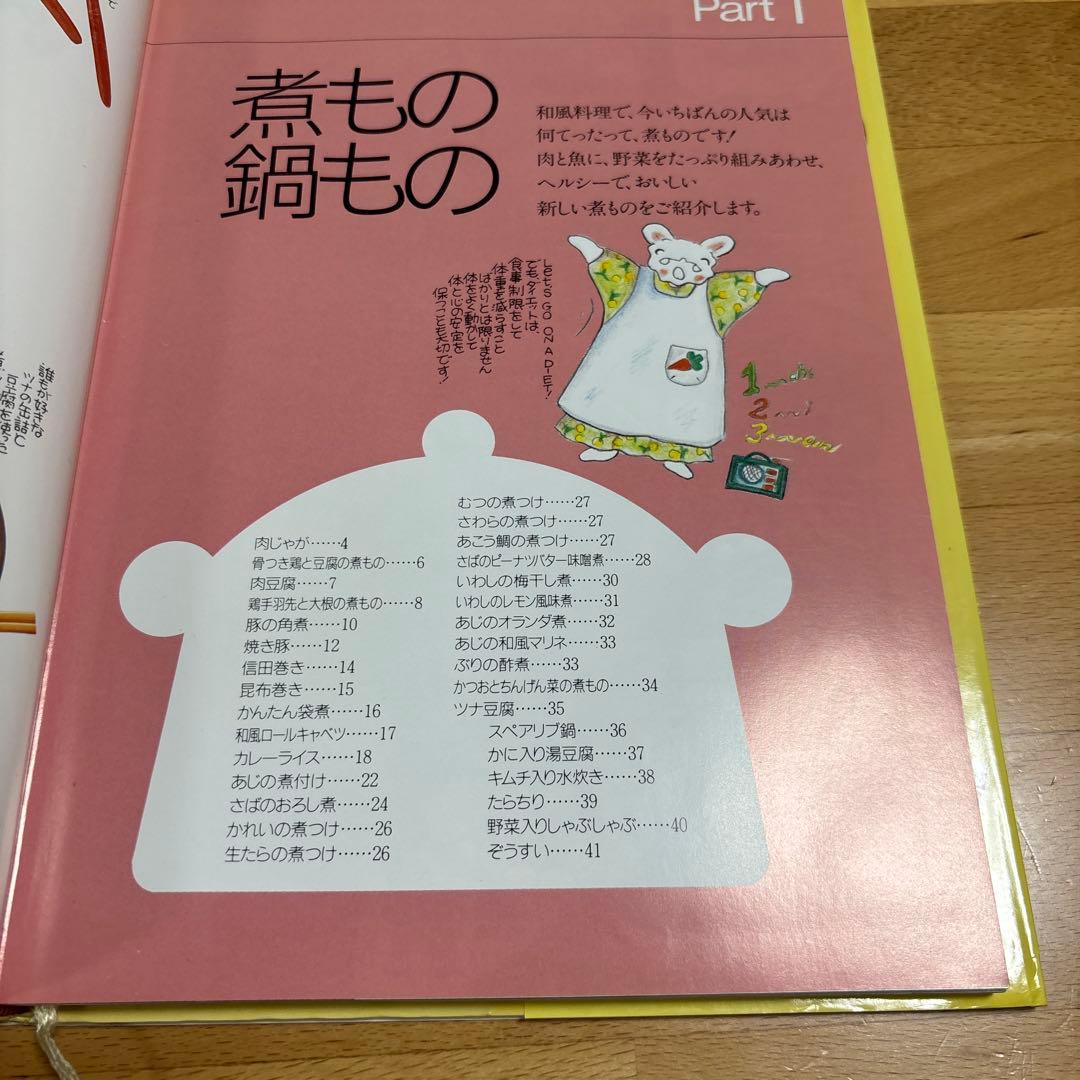 Part 1
煮もの
鍋もの
和風料理で、今いちばんの人気は
何てったって、煮ものです!
肉と魚に、野菜をたっぷり組みあわせ、
ヘルシーで、おいしい
新しい煮ものをご紹介します。
Let's GO ON A DIET!
でも、ダイエットは、
食事制限をして
体重を減らすこと
ばかりとは限りません
体をよく動かして
体と心の安定を
保つことも大切です!
1
2
3
肉じゃが……4
骨つき鶏と豆腐の煮もの……6
肉豆腐……7
鶏手羽先と大根の煮もの……8
豚の角煮……10
焼き豚……12
信田巻き……14
昆布巻き……15
かんたん袋煮……16
和風ロールキャベツ……17
カレーライス……18
あじの煮付け……22
さばのおろし煮……24
かれいの煮つけ……26
生たらの煮つけ……26
むつの煮つけ……27
さわらの煮つけ……27
あこう鯛の煮つけ……27
さばのピーナツバター味噌煮……28
いわしの梅干し煮……30
いわしのレモン風味煮……31
あじのオランダ煮……32
あじの和風マリネ……33
ぶりの酢煮……33
かつおとちんげん菜の煮もの……34
ツナ豆腐……35
スペアリブ鍋……36
かに入り湯豆腐……37
キムチ入り水炊き……38
たらちり……39
野菜入りしゃぶしゃぶ……40
ぞうすい……41
誰もが好きな
ツナの缶詰で